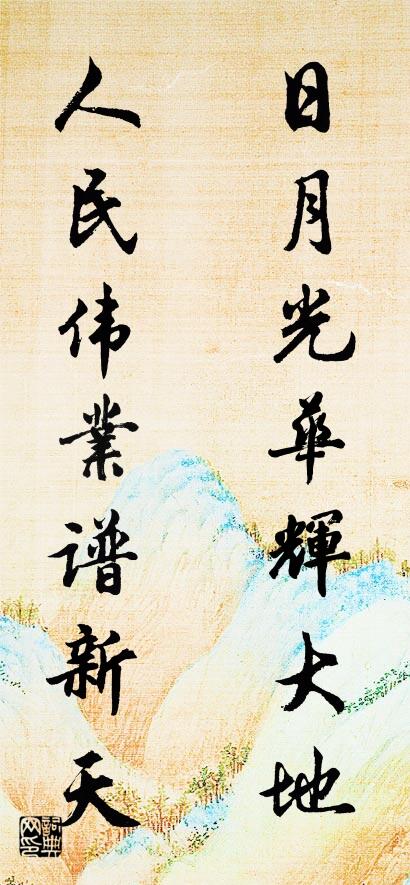 日月光華輝大地
人民伟業谱新天